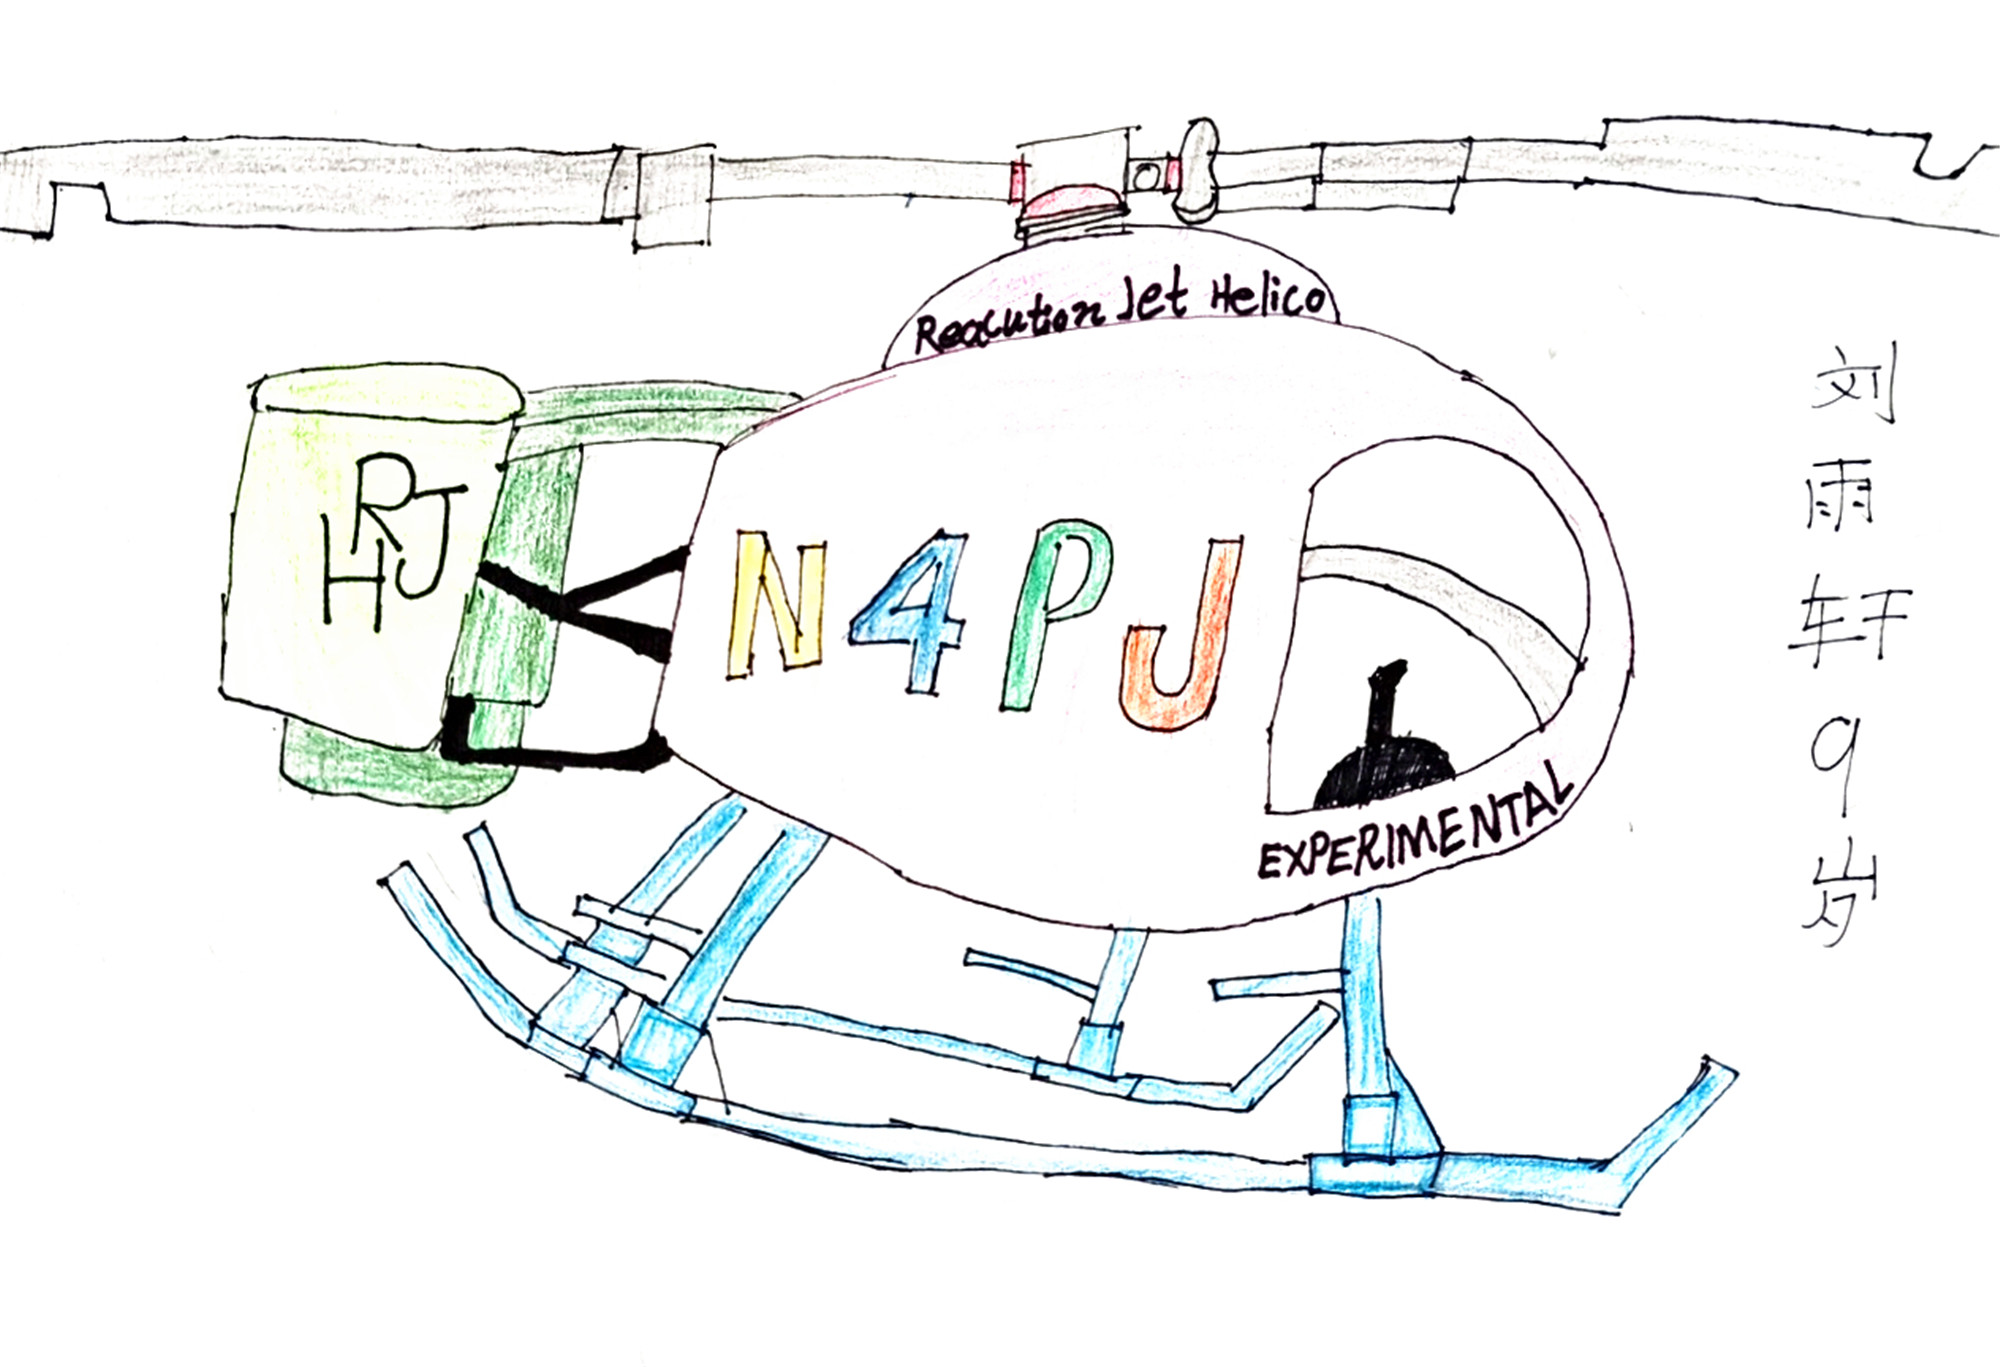 Reacution Jet Helico
RJ
H
N4PJ
EXPERIMENTAL
刘雨轩9岁